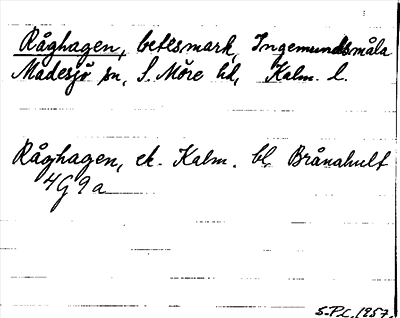 Råghagen, betesmark, Ingemundsmåla
Madesjö sn, S. Möre hd, Kalm. l.
Råghagen, ek. Kalm. bl Brånahult
4G9a
S.P.C. 1957.